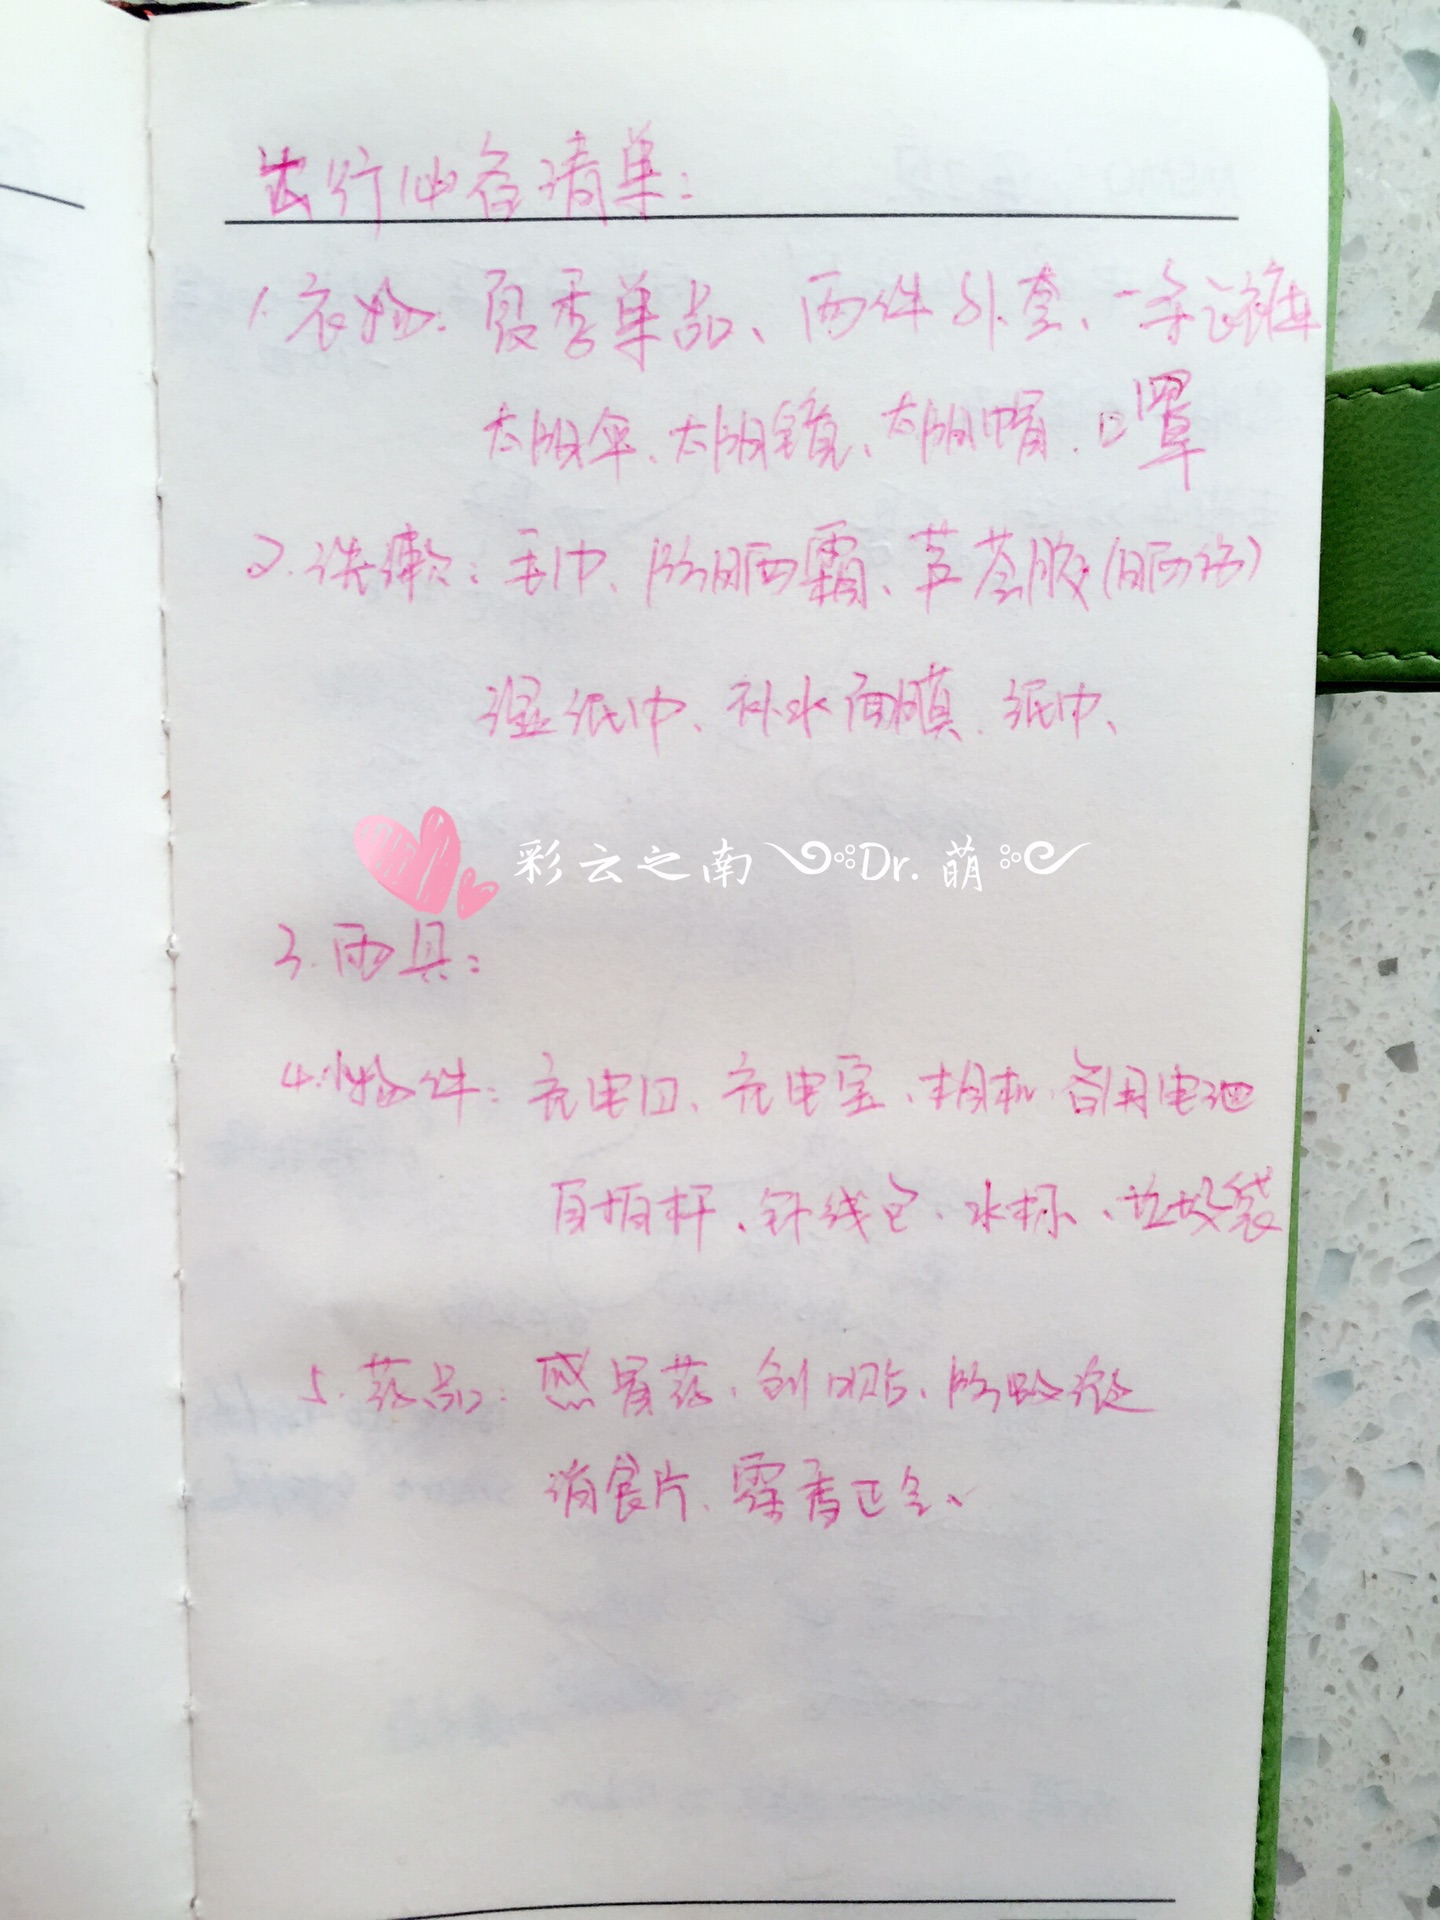 出行必备清单:
1.衣物:夏季单品、两件外套、一条长裤
太阳伞、太阳镜、太阳帽、口罩
2.洗漱:毛巾、防晒霜、芦荟胶(晒后)
湿纸巾、补水面膜、纸巾、
彩云之南 Dr.萌
3.雨具:
4.小物件:充电口、充电宝、相机、备用电池
自拍杆、针线包、水杯、垃圾袋
5.药品:感冒药、创口贴、防蚊液
消食片、霍香正气、